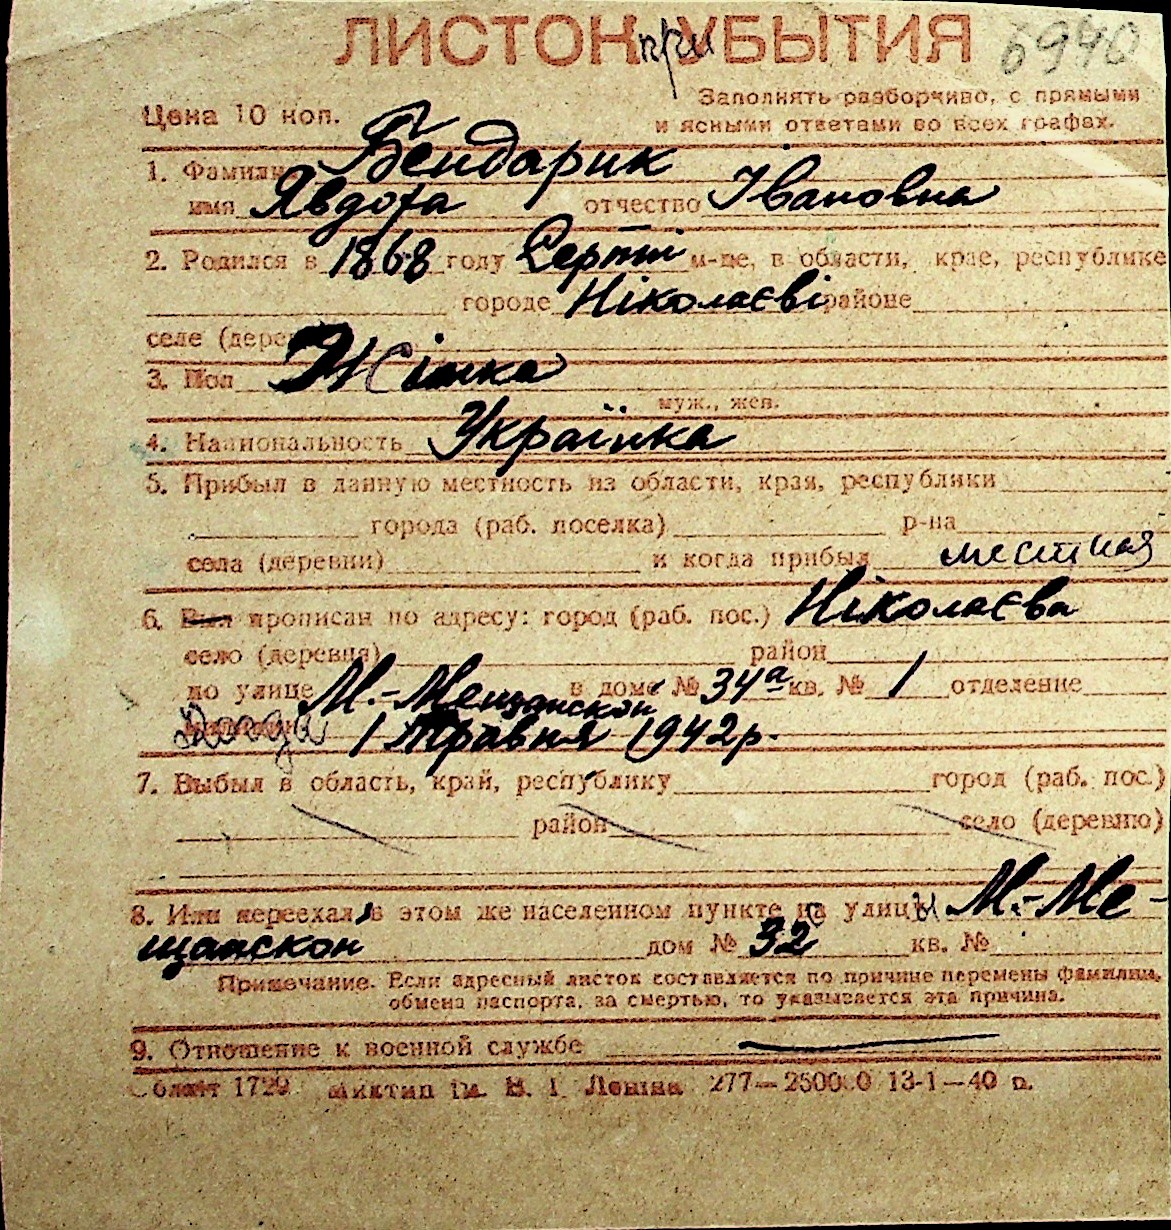 ЛИСТОК при УБЫТИЯ 6940
Цена 10 коп.
Заполнять разборчиво, с прямыми
и ясными ответами во всех графах.
1. Фамилия Бендарик
имя Явдоха отчество Івановна
2. Родился в 1868 году Серпні м-це, в области, крае, республике
городе Ніколаєві районе
селе (дере
3. Пол Жінка
муж., жен.
4. Национальность Українка
5. Прибыл в данную местность из области, края, республики
города (раб. поселка) р-на
села (деревни) и когда прибыл местная
6. Был прописан по адресу: город (раб. пос.) Ніколаєва
село (деревня) район
по улице М.-Мещанской в доме № 34а кв. № 1 отделение
1 Травня 1942 р.
7. Выбыл в область, край, республику город (раб. пос.)
район село (деревню)
8. Или переехал в этом же населенном пункте с улицы М.-Ме-
щанской дом № 32 кв. №
Примечание. Если адресный листок составляется по причине перемены фамилии,
обмена паспорта, за смертью, то указывается эта причина.
9. Отношение к военной службе
Облліт 1729 Миктип ім. В. І. Леніна 277—250000 13-1—40 р.